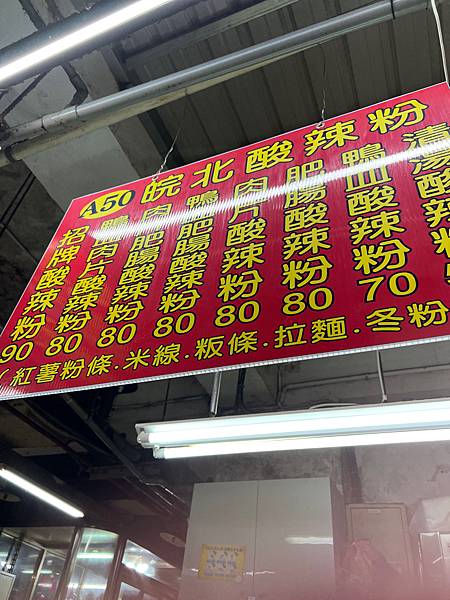 A50 皖北酸辣粉
招牌酸辣粉 90
鴨血肉片酸辣粉 80
肉片肥腸酸辣粉 80
鴨血肥腸酸辣粉 80
肉片酸辣粉 80
肥腸酸辣粉 80
鴨血酸辣粉 70
清湯酸辣
(紅薯粉條.米線.粄條.拉麵.冬粉